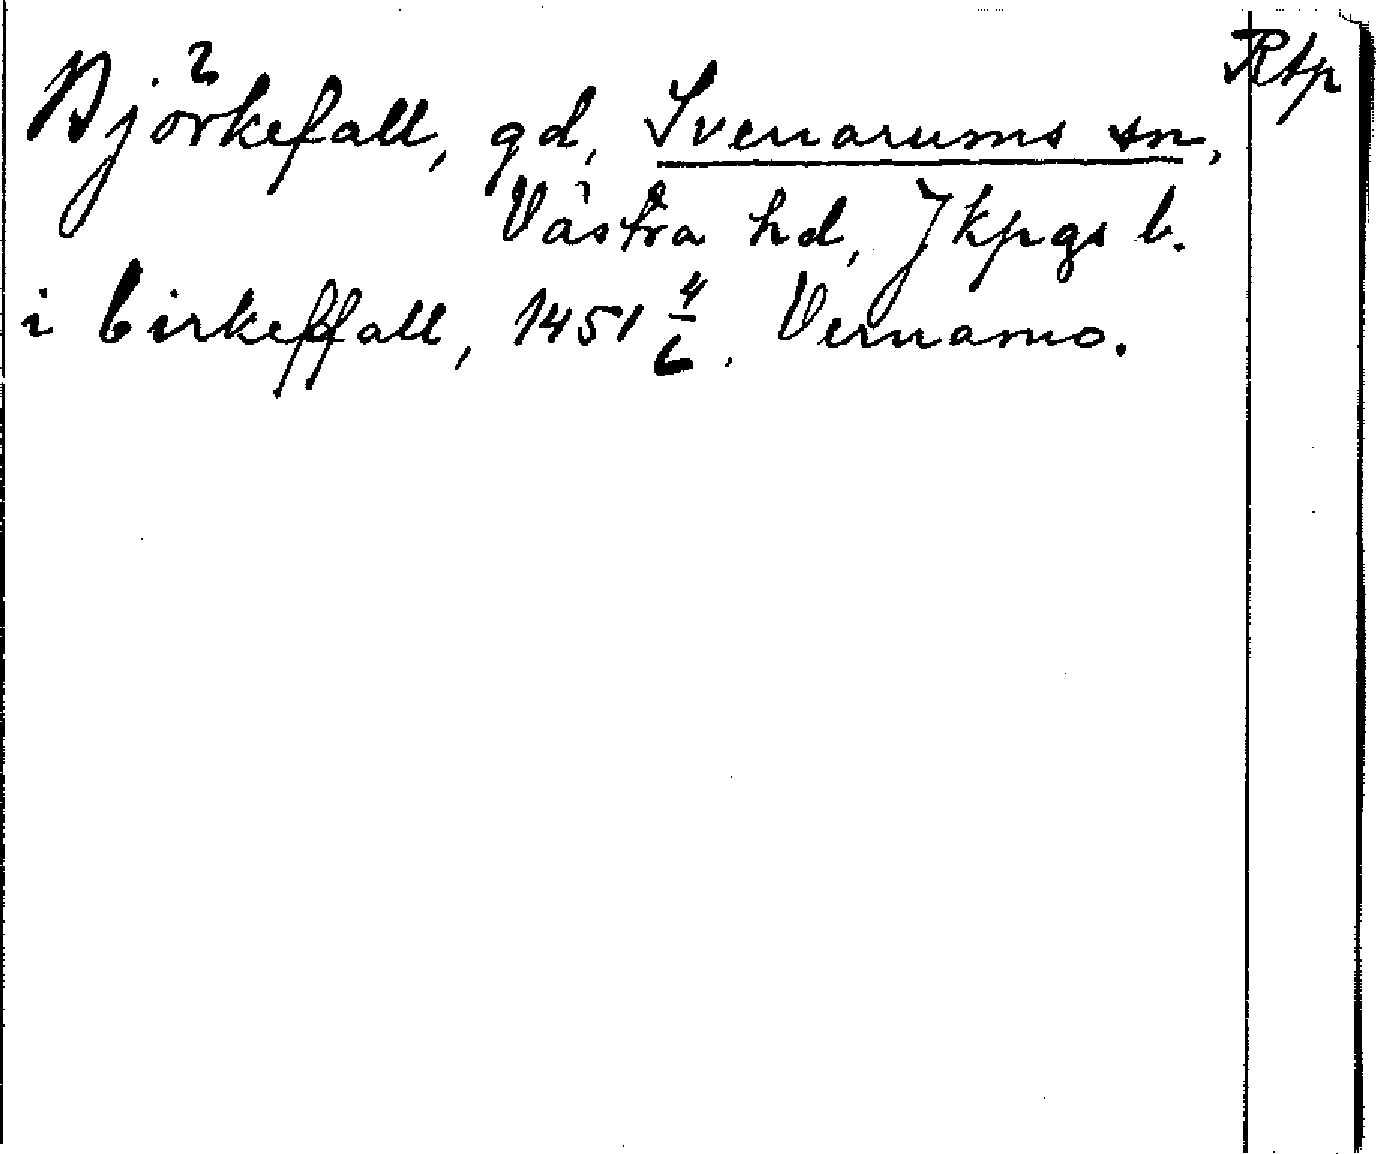 Rtp
Björkefall, gd, Svenarums sn,
Västra hd, Jkpgs l.
i birkeffall, 1451 4/6. Vernamo.